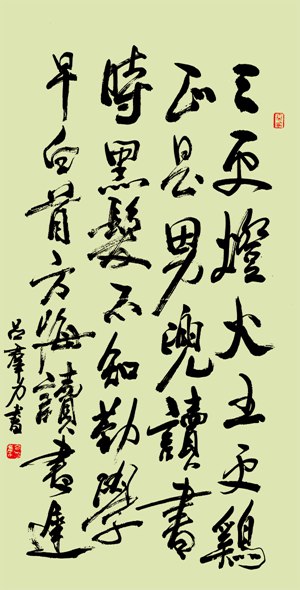 三更燈火五更鷄
正是男兒讀書
時黑髮不知勤學
早白首方悔讀書遲
吕群力書